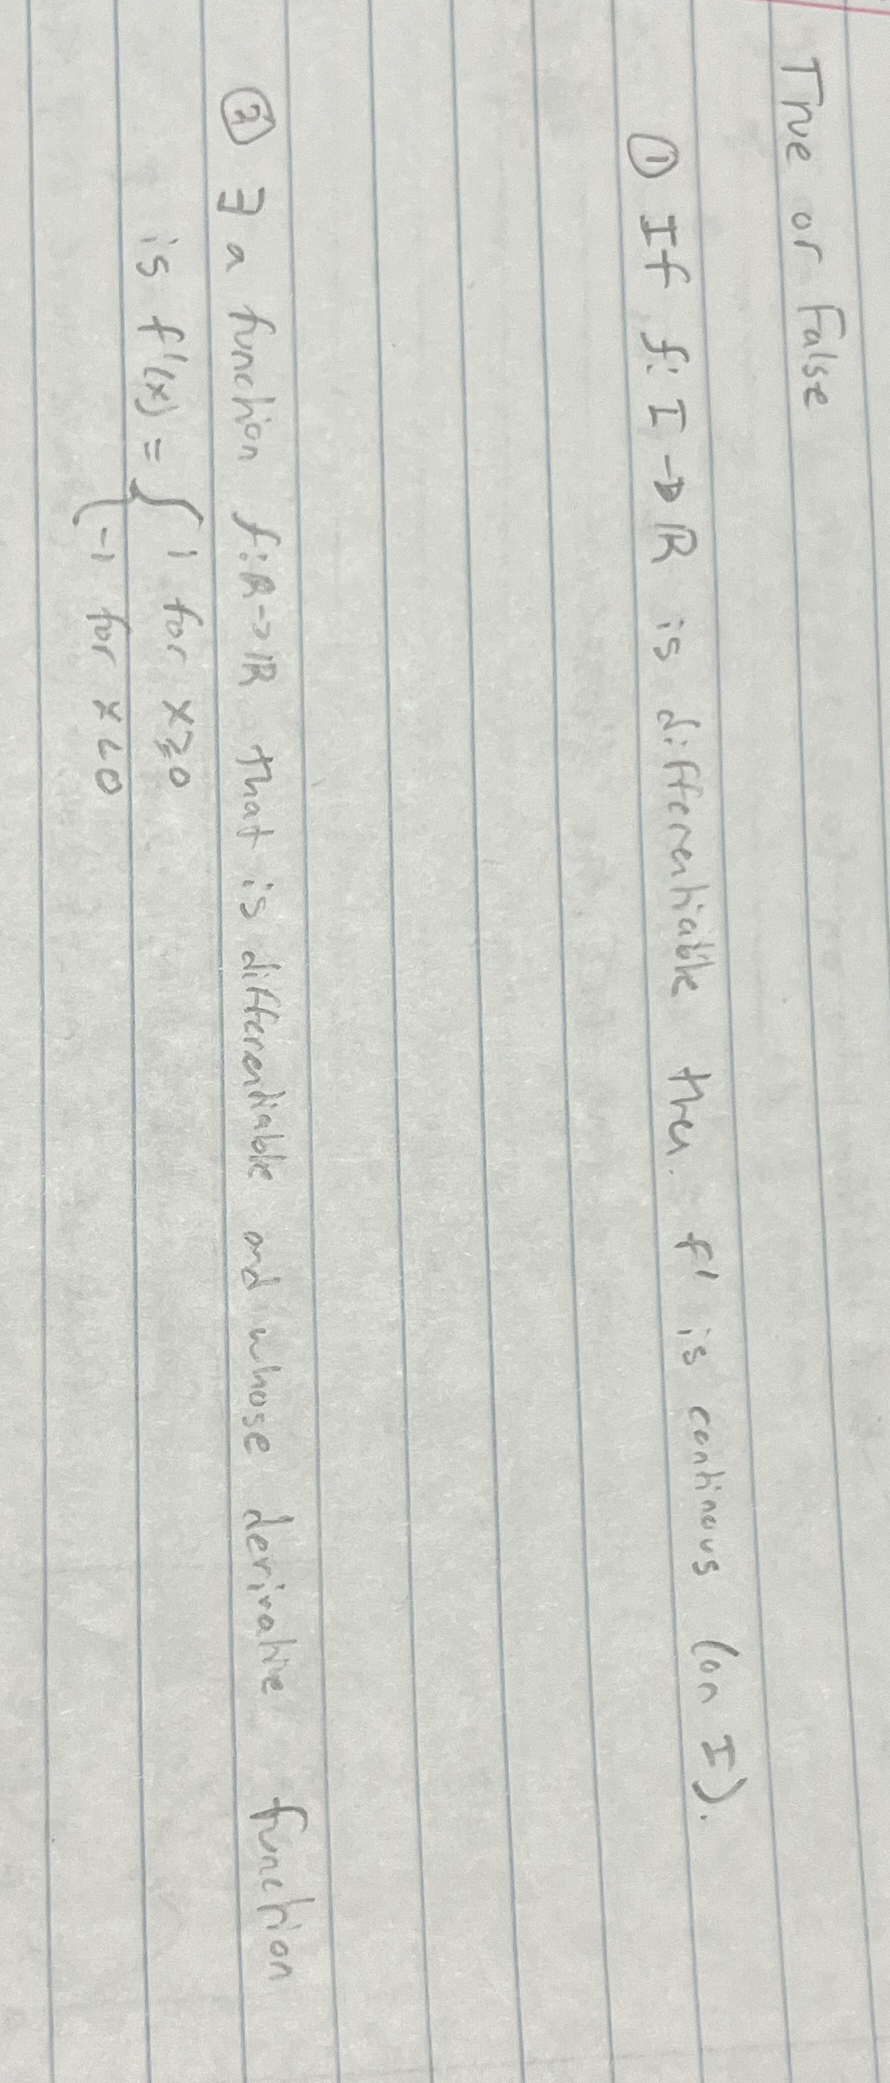 True or False
① If f: I → ℝ is differentiable then f' is continous (on I).
② ∃ a function f: ℝ → ℝ that is differentiable and whose derivative function
is f'(x) = { 1 for x ≥ 0
-1 for x < 0